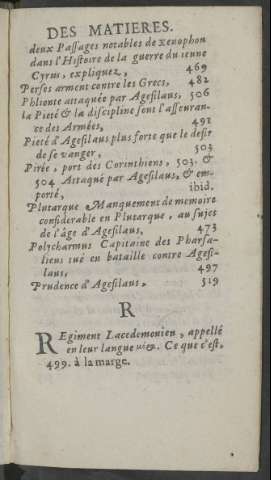 DES MATIERES.
deux Passages notables de xenophon
dans l'Histoire de la guerre du ieune
Cyrus, expliquez, 469
Perses arment contre les Grecs, 482
Phlionte attaquée par Agesilaus, 506
la Pieté & la discipline sont l'asseuran-
ce des Armées, 492
Pieté d'Agesilaus plus forte que le desir
de se vanger, 503
Pirée, port des Corinthiens, 503. &
504 Attaqué par Agesilaus, & em-
porté, ibid.
Plutarque Manquement de memoire
considerable en Plutarque, au sujet
de l'âge d'Agesilaus, 473
Polycharmus Capitaine des Pharsa-
liens tué en bataille contre Agesi-
laus, 497
Prudence d'Agesilaus, 519
R
REgiment Lacedemonien, appellé
en leur langue Ce que c'est,
499. à la marge.